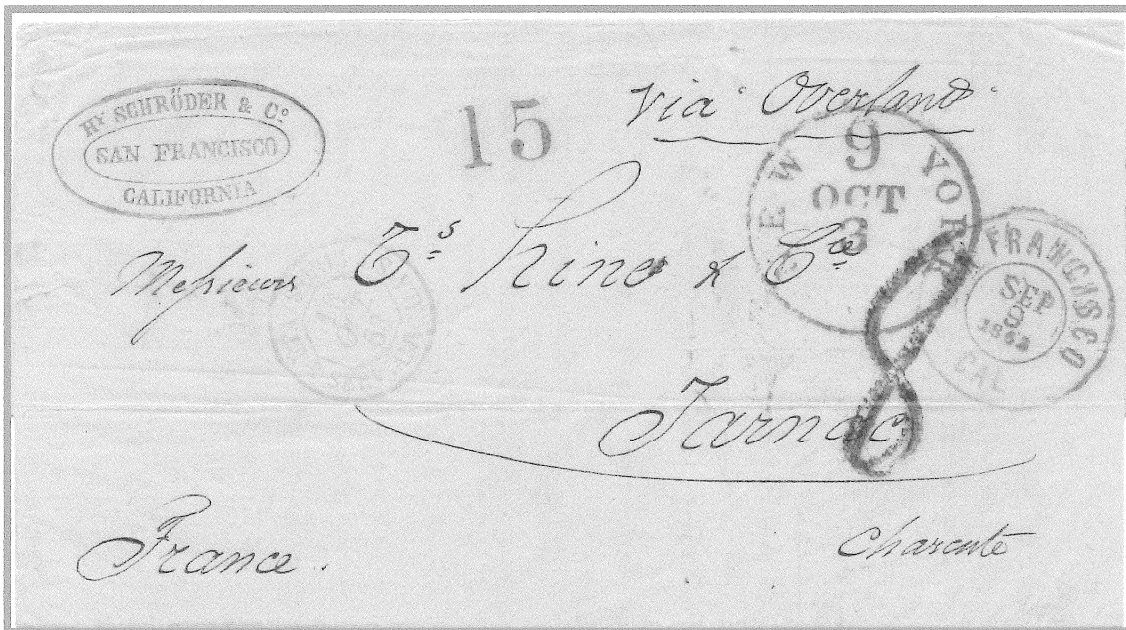 Hy SCHRÖDER & Co.
SAN FRANCISCO
CALIFORNIA
15
Via Overland
NEW YORK
9
OCT
3
FRANCISCO
SEP
1862
CAL
8
Messieurs Ts Hine & Cie
Jarnac
Charente
France.